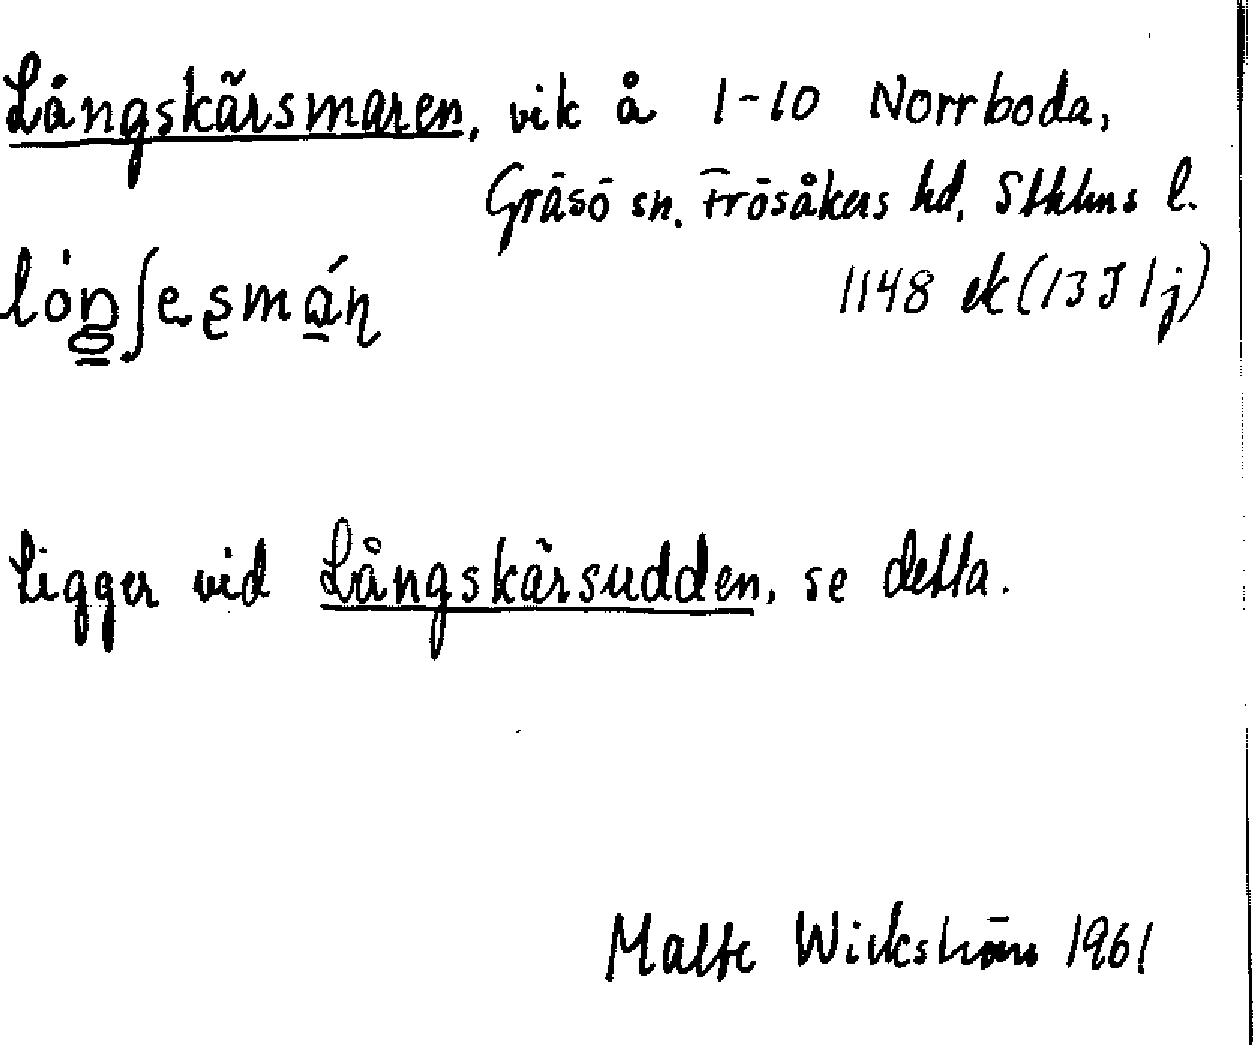 Långskärsmaren, vik å 1-10 Norrboda,
Gräsö sn. Frösåkers hd, Sthlms l.
1148 ek (13 I 1 j)
Ligger vid Långskärsudden, se detta.
Malte Wickström 1961